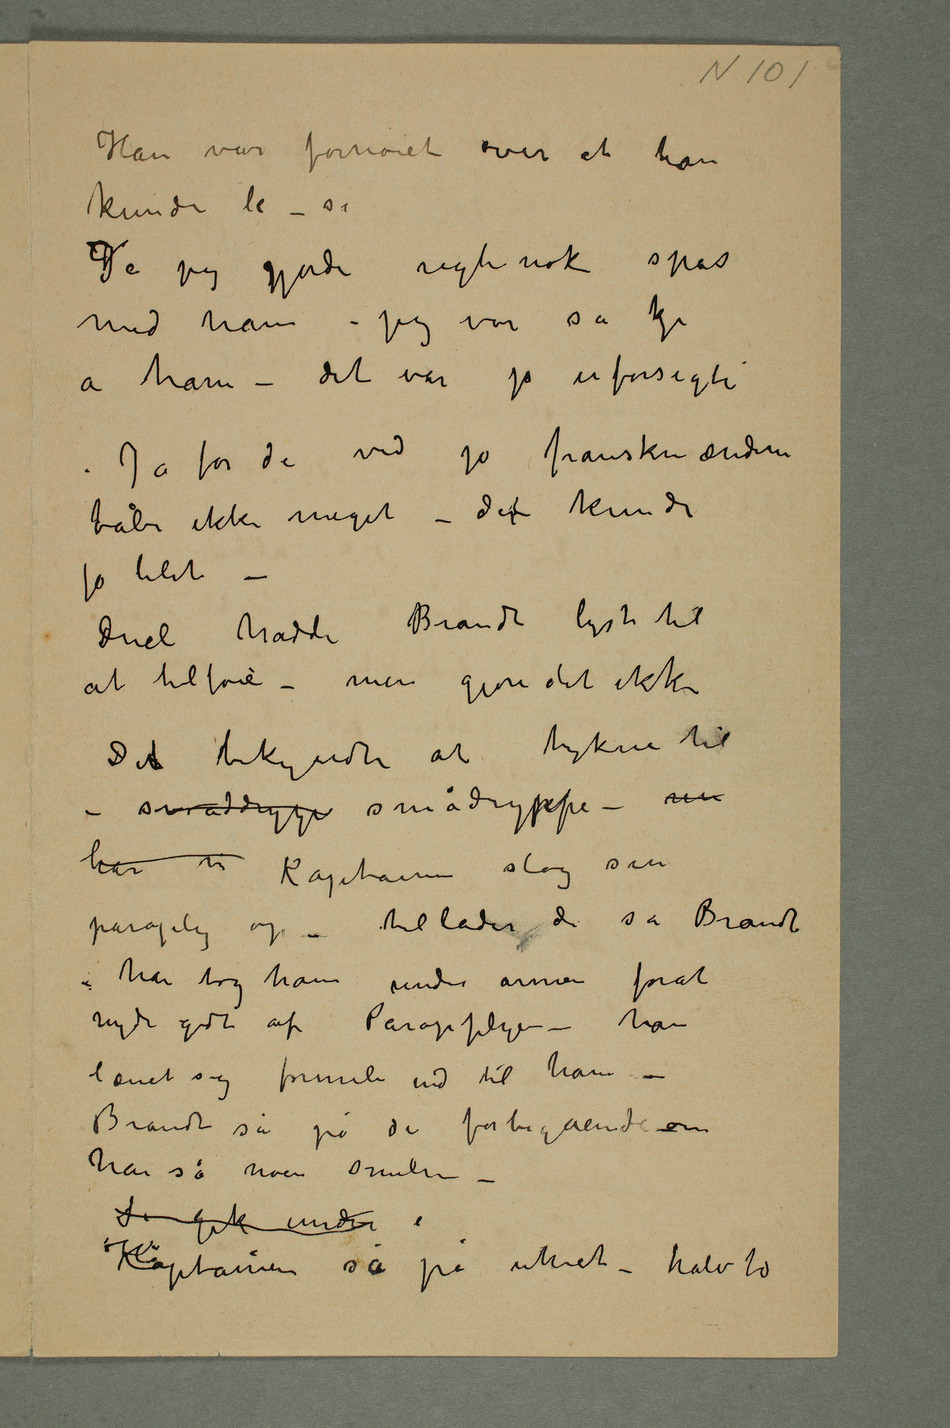 N 101
Han var fornøiet over at han
kunde le – se
Ja jeg gjorde rigtinok spas
med ham – jeg var så kje
a ham – det var jo uforsigti
. Ja for de ved jo franskmændene
tåler ikke meget – det kunde
jo blit –
Duel hadde Brandt lyst til
at tilføie – men gjore det ikke
Det bekyndte at tykne til
– småddryge smådryppe – nu
har vi Kaptainen slog sin
paraply op – tillader de sa Brandt
– han tog ham under armen forat
nyde godt af Parapplyen – han
lænet sig formeli ind til ham –
Brandt så på de forbigående om
han så noen smilen –
De gik under i
Kaptainen så på uhret – halv to